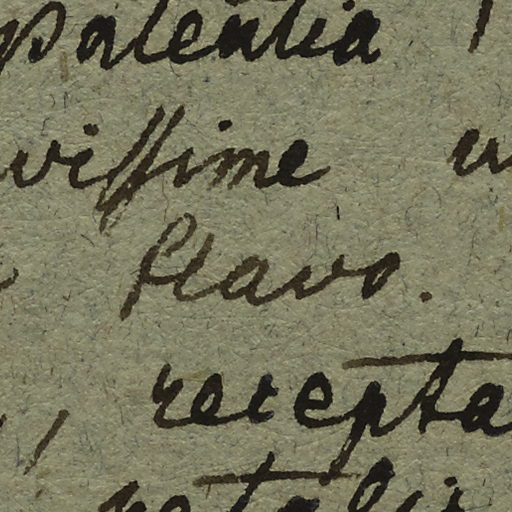 patentia
vissime
flavo.
, recepta
petalis